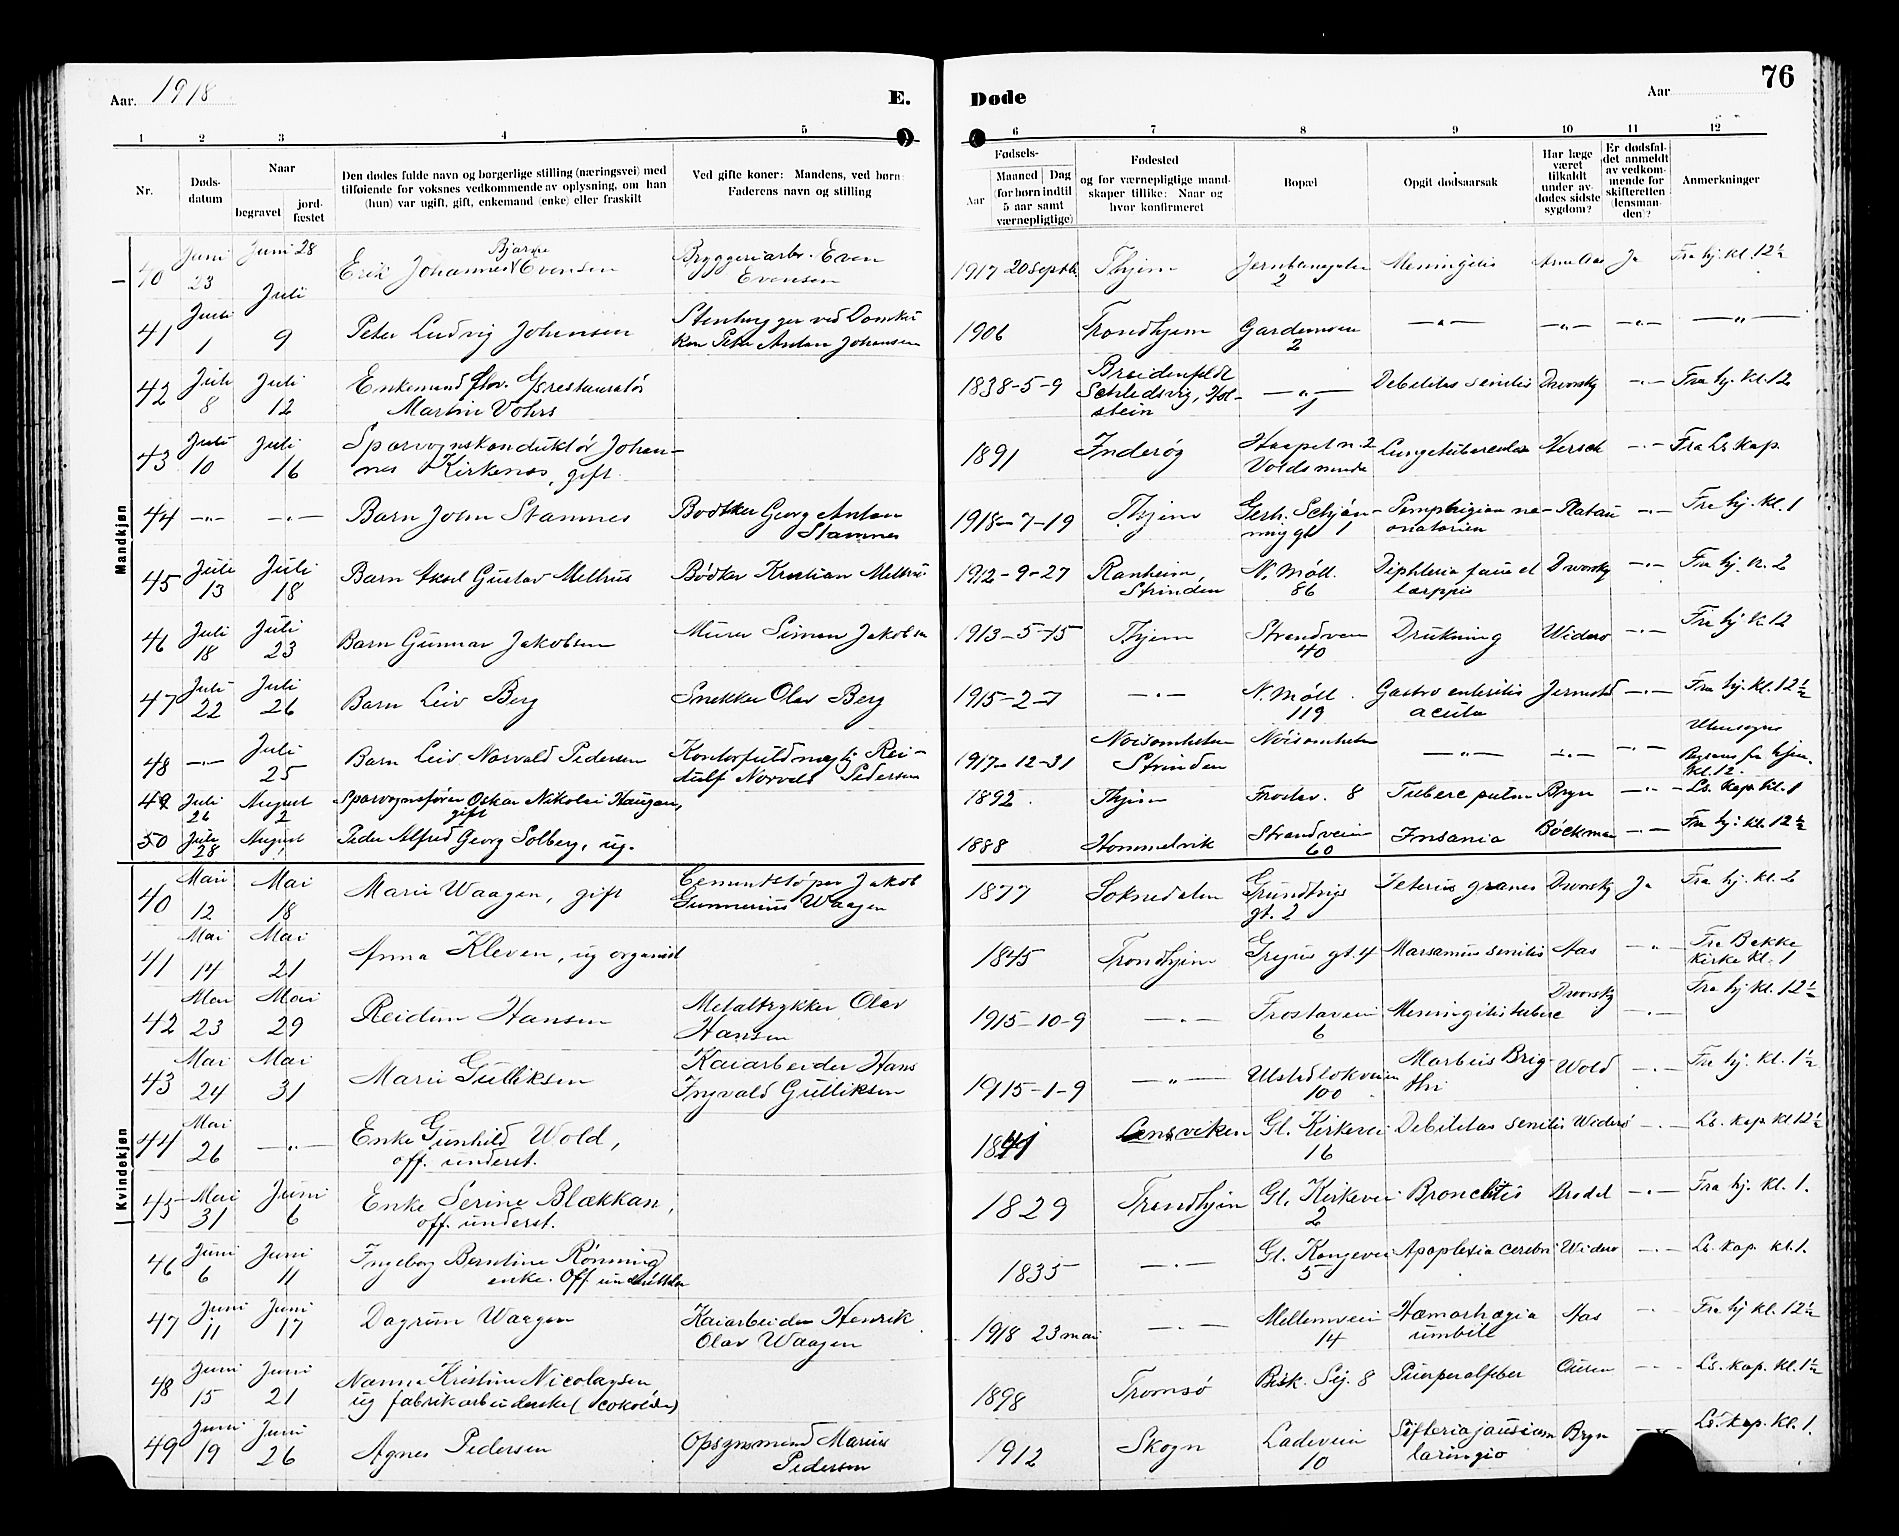 Aar. 1918
E.
Døde
Aar
76
1 2 3 4 5 6 7 8 9 10 11 12
Nr.
Døds-
datum
Naar
begravet
jord-
fæstet
Den dødes fulde navn og borgerlige stilling (næringsvei) med
tilføiende for voksnes vedkommende av oplysning, om han
(hun) var ugift, gift, enkemand (enke) eller fraskilt
Ved gifte koner: Mandens, ved børn:
Faderens navn og stilling
Fødsels-
Aar
Maaned Dag
(for børn indtil
5 aar samt
værnepligtige)
Fødested
og for værnepligtige mand-
skaper tillike: Naar og
hvor konfirmeret
Bopæl
Opgit dødsaarsak
Har læge
været
tilkaldt
under av-
dødes sidste
sygdom?
Er dødsfal-
det anmeldt
av vedkom-
mende for
skifteretten
(lensman-
den)?
Anmerkninger
Mandkjøn
40 Juni 23 Juni 28 Erik Johannes Bjarne Evensen Bryggeriarb. Even Evensen 1917 20 Septb. Thjem Jernbanegaten 2 Meningitis Ja Fra hj. kl. 12½
41 Juli 1 Juli 9 Peter Ludvig Johansen 1906 Trondhjem Gardemoen 2 —"— —"— —"— —"—
42 Juli 8 Juli 12 Enkemand Martin Vohrs 1838-5-9 Schledsvig, Hol-stein —"— Debilitas senilis Dvorsky —"— Fra hj. kl. 12
43 Juli 10 Juli 16 Sporvognskonduktör Johan-nes Kirkenes, gift 1891 Inderøg Voldsminde Lungetuberculose Hersch —"— Fra Ls. kap.
44 —"— —"— Barn John Stamnes Bødtker Georg Anton Stamnes 1918-7-19 Thjem Gerh. Schøn-ning gt 1 Platou —"— Fra hj. kl. 1
45 Juli 13 Juli 18 Barn Aksel Gustav Melhus Bödker Kristian Melhus 1912-9-27 Ranheim, Strinden N. Möll. 86 Dvorsky —"— Fra hj. 2
46 Juli 18 Juli 23 Barn Gunnar Jakobsen Murer Simon Jakobsen 1913-5-15 Thjem Strandveien 40 Drukning Widerø —"— Fra hj. k. 12
47 Juli 22 Juli 26 Barn Leiv Berg Snekker Olav Berg 1915-2-7 —"— N. Möll. 119 Gastro enteritis acuta —"— Fra hj. kl. 12½
48 —"— Juli 25 Barn Leiv Norvald Pedersen Kontorfuldmægtig Rei-dulf Norvald Pedersen 1917-12-31 Nøisomheten Strinden Nøisomheten —"— —"— —"— Utensogns Begraves fra hjem. kl. 12.
49 Juli 26 August 2 Sporvognsfører Oskar Nikolai Haugan, gift 1892 Thjem Frostav. 8 Tuberc pulm Bryn —"— Ls. kap. kl. 1
50 Juli 28 August Peder Alfred Georg Solberg, ug. 1888 Hommelvik Strandveien 60 Insania Bøckman —"— Fra hj. kl. 12½
Kvindekjøn
40 Mai 12 Mai 18 Marie Waagen, gift Cementstøper Jakob Gunnerius Waagen 1877 Soknedalen Grundtvigs gt. 2 Dvorsky Ja Fra hj. kl. 2
41 Mai 14 Mai 21 Anna Kleven, ug organist 1845 Trondhjem gt. 4 Marsamus senilis Aas —"— Fra Bakke Kirke kl. 1
42 Mai 23 Mai 29 Reidun Hansen Metaltrykker Olav Hansen 1915-10-9 —"— Frostaveien 6 Meningitis tuberc Dvorsky —"— Fra hj kl. 12½
43 Mai 24 Mai 31 Marie Gulliksen Kaiarbeider Hans Ingvald Gulliksen 1915-1-9 —"— 100 Morbus Brig-thi Wold —"— Fra hj. kl. 1½
44 Mai 26 —"— Enke Gunhild Wold, off. underst. 1841 Lensviken Gl. Kirkevei 16 Debilitas senilis Widerø —"— Ls. kap kl 12½
45 Mai 31 Juni 6 Enke Serine Blækkan, off. underst. 1829 Trondhjem Gl. Kirkevei 2 Bronchitis —"— Fra hj. kl. 1.
46 Juni 6 Juni 11 Ingeborg Berntine Rønning enke. Off 1835 —"— Gl. Kongevei 5 Apoplexia cerebri Widerø —"— Ls. kap. kl. 1.
47 Juni 11 Juni 17 Dagrun Waagen Kaiarbeider Henrik Olav Waagen 1918 23 mai —"— Mellemveien 14 Hæmorhagia umbile Aas —"— Fra hj kl. 12½
48 Juni 15 Juni 21 Nanna Kristine Nicolaysen ug fabrikarbeiderske 1898 Tromsø Bisk. Sig. 8 Puerperalfeber —"— Ls. kap. kl. 1½
49 Juni 19 Juni 26 Agnes Pedersen Opsynsmand Marius Pedersen 1912 Skogn Ladeveien 10 Bryn Ls. kap. kl. 1.